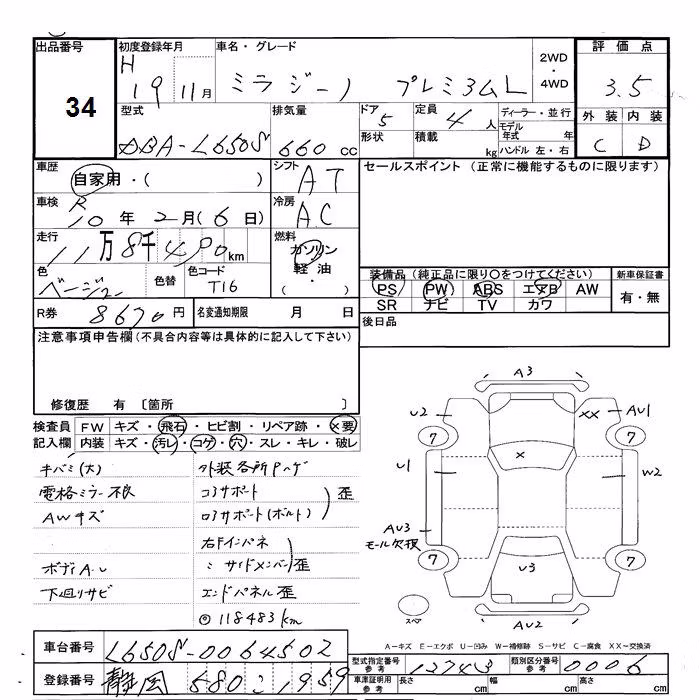 出品番号 初度登録年月 車名・グレード 2WD・4WD 評価点
34 H 19 11月 ミラジーノ プレミアムL 3.5
型式 排気量 ドア 定員 ディーラー・並行 外装 内装
DBA-L650S 660cc 5 4人 モデル年式 年 C D
形状 積載 kg ハンドル 左・右
車歴 自家用・( ) シフト AT セールスポイント (正常に機能するものに限ります)
車検 R 10年 2月(6日) 冷房 AC
走行 11万8千490km 燃料 ガソリン 軽油・( )
色 ベージュ 色替 色コード T16
装備品 (純正品に限り○をつけてください) 新車保証書
PS PW ABS エアB AW 有・無
SR ナビ TV カワ
R券 8670円 名変通知期限 月 日 後日品
注意事項申告欄 (不具合内容等は具体的に記入して下さい)
修復歴 有 〔箇所 〕
検査員 FW キズ・飛石・ヒビ割・リペア跡・×要
記入欄 内装 キズ・汚レ・コゲ・穴・スレ・キレ・破レ
キバミ(大) 外装各所Pハゲ
電格ミラー不良 コアサポート 歪
AWキズ ロアサポート(ボルト)
右Fインパネ
ボディA・U 〃 サイドメンバー 歪
下廻りサビ エンドパネル歪
118483km
A3
U2 XX AU1
7 7
U1 × W2
AU3
モール欠損
7 7
U3
スペア AU2
A-キズ E-エクボ U-凹み W-補修跡 S-サビ C-腐食 XX-交換済
車台番号 L650S-0064502 型式指定番号 参考 12743 類別区分番号 参考 0006
登録番号 静岡 580 1959 車庫証明用 参考 長さ cm 幅 cm 高さ cm